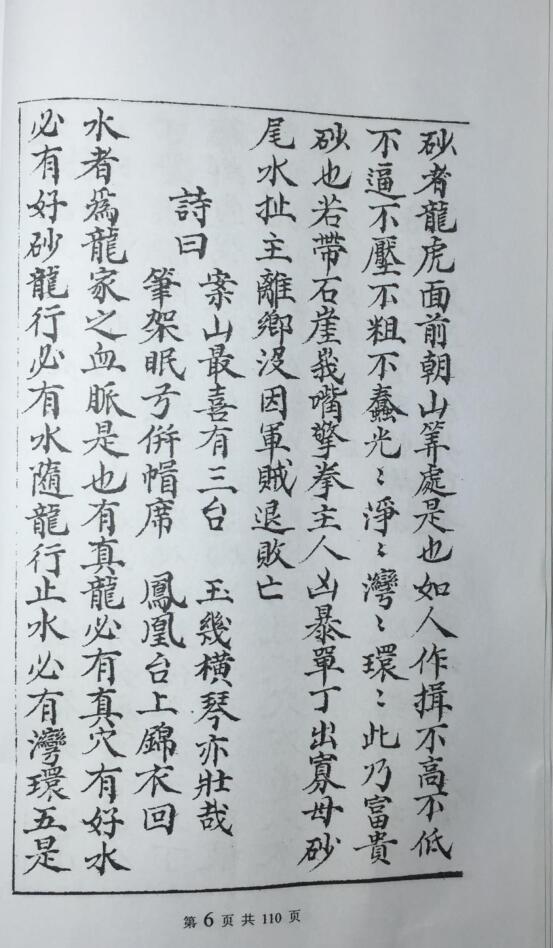 砂者龍虎面前朝山筭處是也如人作揖不高不低
不逼不壓不粗不蠢光〻淨〻灣〻環〻此乃富貴
砂也若帶石崖峩嘴擎拳主人凶暴單丁出寡母砂
尾水扯主離鄉沒因軍賊退敗亡
詩曰
案山最喜有三台 玉幾橫琴亦壯哉
筆架眠弓併帽席 鳳凰台上錦衣回
水者為龍家之血脈是也有真龍必有真穴有好水
必有好砂龍行必有水隨龍行止水必有灣環五是
第 6 页 共 110 页